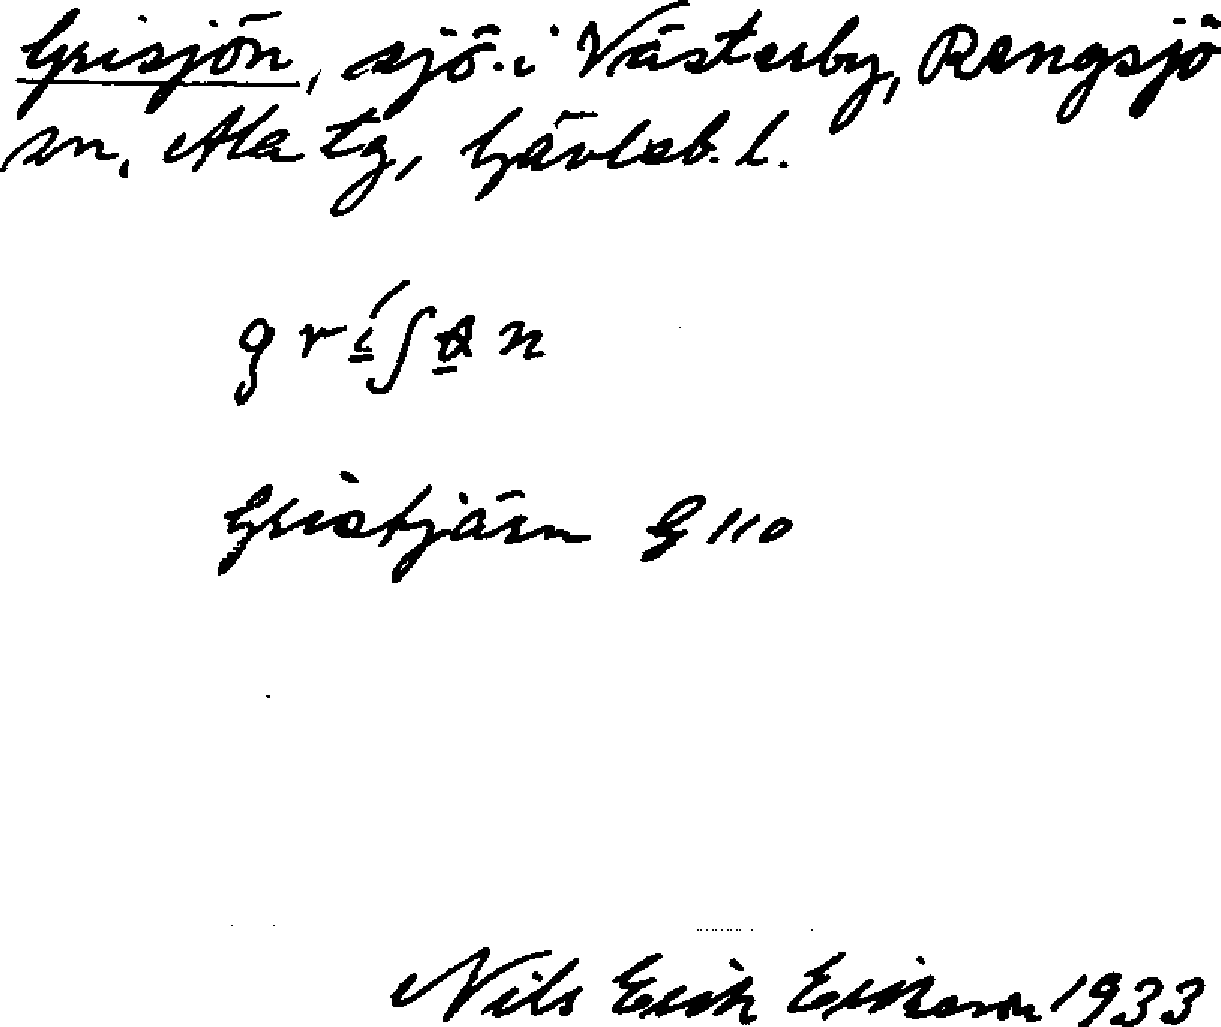 Grisjön, sjö i Västerby, Rengsjö
sn, Ala tg, Gävleb. l.
Gristjärn G 110
Nils Erik Eriksson 1933